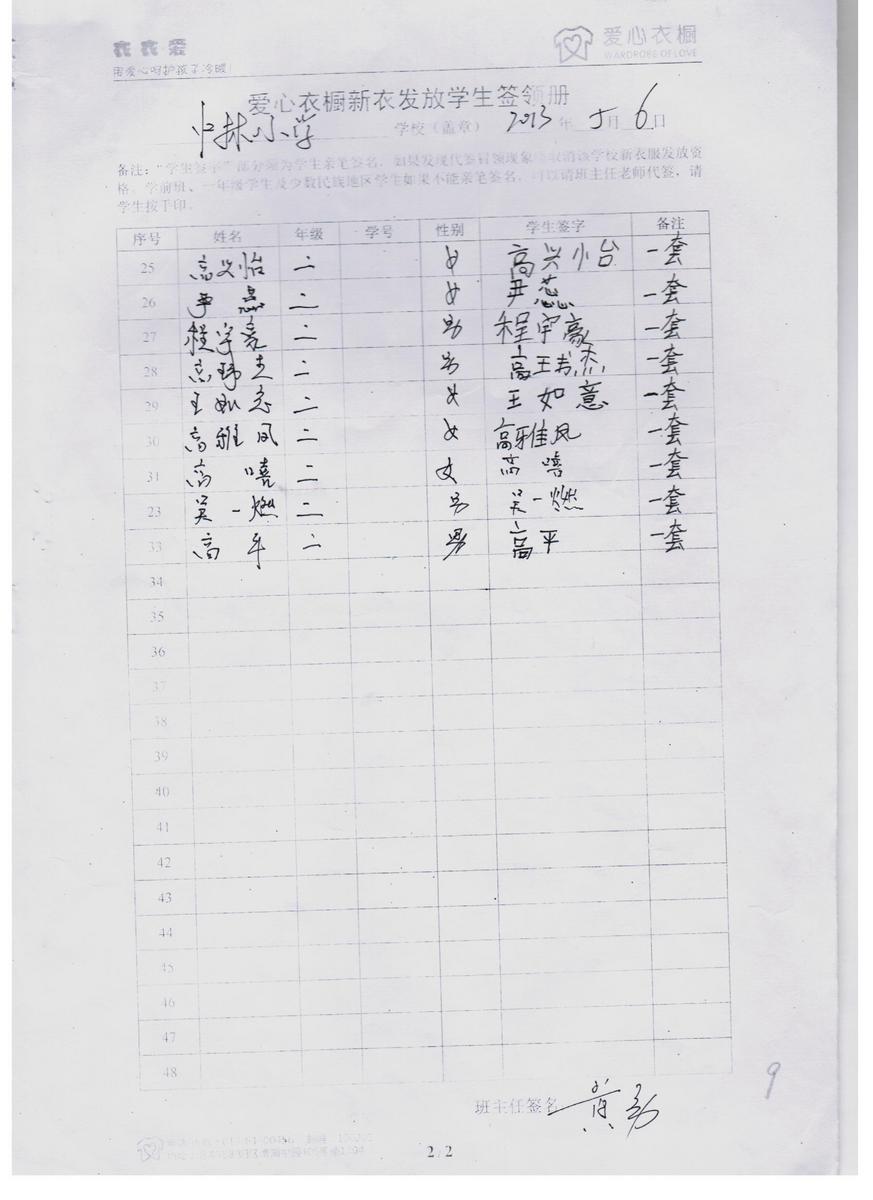 衣衣爱
用爱心呵护孩子冷暖!
爱心衣橱
WARDROBE OF LOVE
爱心衣橱新衣发放学生签领册
中林小学 学校（盖章） 2013 年 5 月 6 日
备注："学生签字"部分须为学生亲笔签名，如果发现代签冒领现象将取消该学校新衣服发放资
格。学前班、一年级学生及少数民族地区学生如果不能亲笔签名，可以请班主任老师代签，请
学生按手印。
序号 姓名 年级 学号 性别 学生签字 备注
25 高兴怡 二 女 高兴怡 一套
26 尹蕊 二 女 尹蕊 一套
27 程宇豪 二 男 程宇豪 一套
28 高 杰 二 男 高 杰 一套
29 王如意 二 女 王如意 一套
30 高雅凤 二 女 高雅凤 一套
31 高嘻 二 女 高嘻 一套
23 吴一燃 二 男 吴一燃 一套
33 高平 二 男 高平 一套
34
35
36
37
38
39
40
41
42
43
44
45
46
47
48
班主任签名
2/2
9